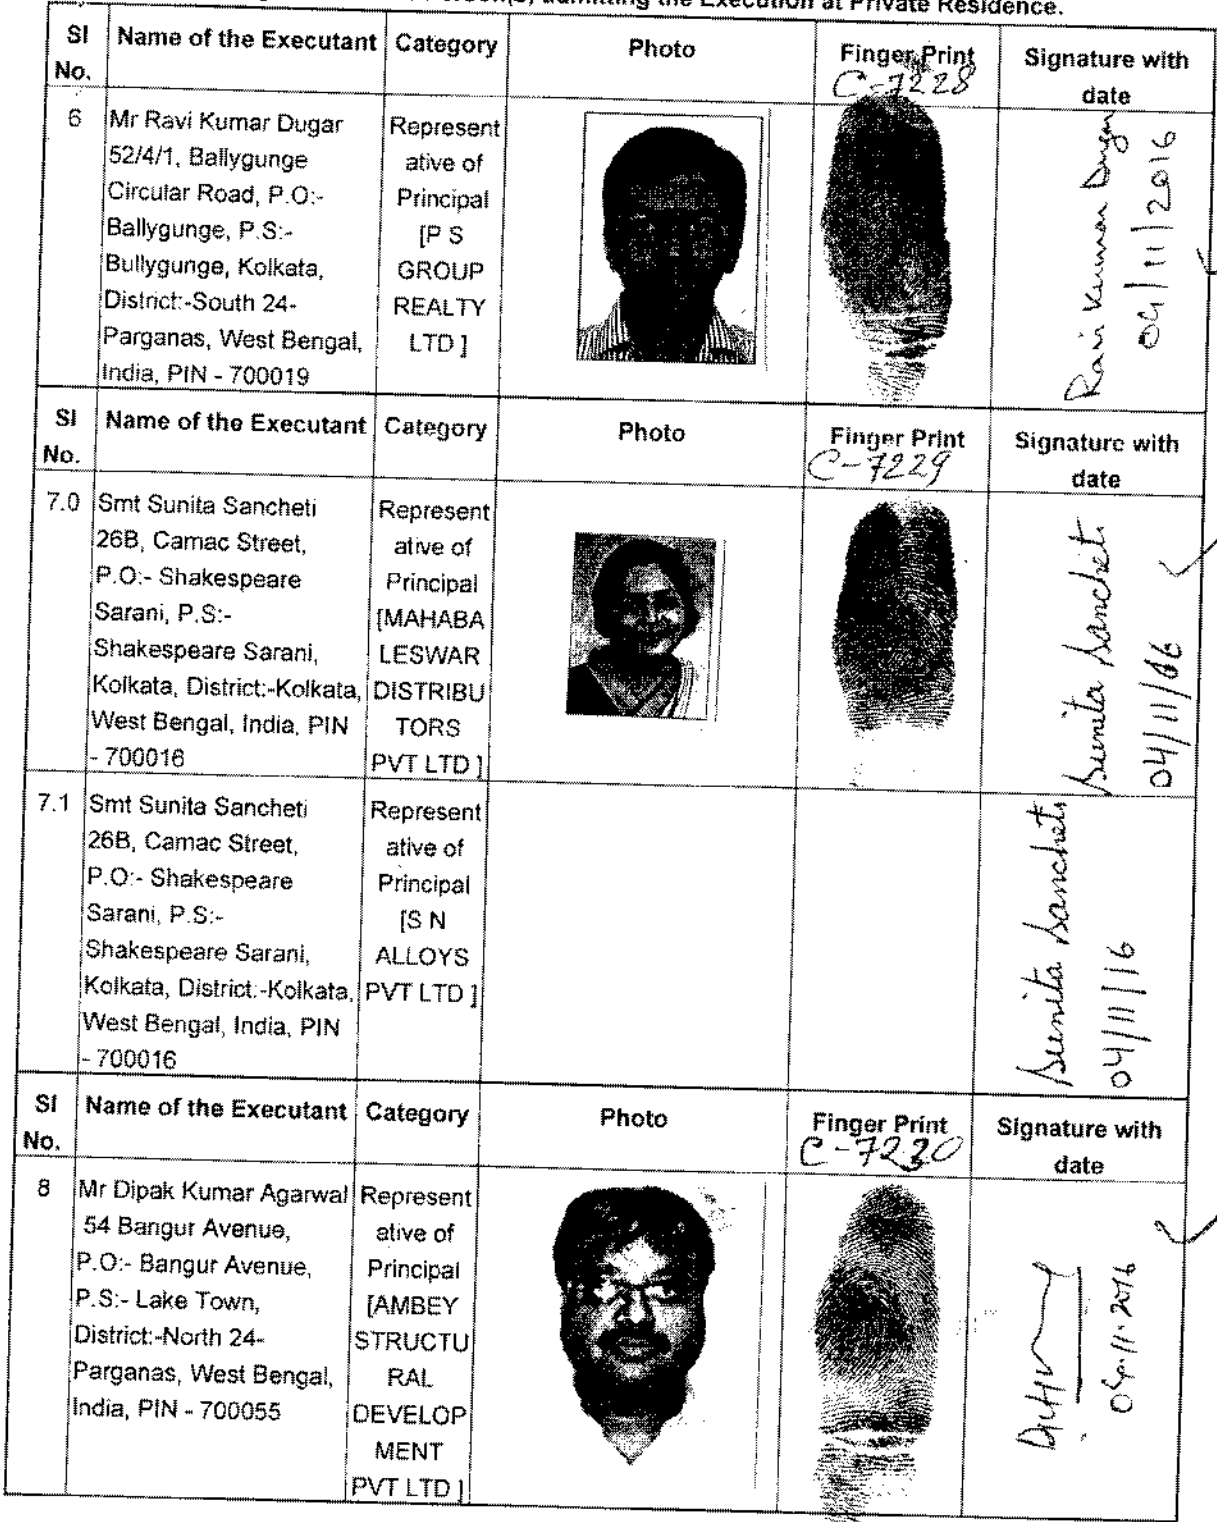 admitting the Execution at Private Residence.
Sl No. Name of the Executant Category Photo Finger Print Signature with date
C-7228
6 Mr Ravi Kumar Dugar
52/4/1, Ballygunge
Circular Road, P.O:-
Ballygunge, P.S:-
Bullygunge, Kolkata,
District:-South 24-
Parganas, West Bengal,
India, PIN - 700019
Represent
ative of
Principal
[P S
GROUP
REALTY
LTD ]
Ravi Kumar Dugar
04/11/2016
Sl No. Name of the Executant Category Photo Finger Print Signature with date
C-7229
7.0 Smt Sunita Sancheti
26B, Camac Street,
P.O:- Shakespeare
Sarani, P.S:-
Shakespeare Sarani,
Kolkata, District:-Kolkata,
West Bengal, India, PIN
- 700016
Represent
ative of
Principal
[MAHABA
LESWAR
DISTRIBU
TORS
PVT LTD ]
Sunita Sancheti
04/11/
7.1 Smt Sunita Sancheti
26B, Camac Street,
P.O:- Shakespeare
Sarani, P.S:-
Shakespeare Sarani,
Kolkata, District:-Kolkata,
West Bengal, India, PIN
- 700016
Represent
ative of
Principal
[S N
ALLOYS
PVT LTD ]
Sunita Sancheti
04/11/16
Sl No. Name of the Executant Category Photo Finger Print Signature with date
C-7230
8 Mr Dipak Kumar Agarwal
54 Bangur Avenue,
P.O:- Bangur Avenue,
P.S:- Lake Town,
District:-North 24-
Parganas, West Bengal,
India, PIN - 700055
Represent
ative of
Principal
[AMBEY
STRUCTU
RAL
DEVELOP
MENT
PVT LTD ]
04.11.2016